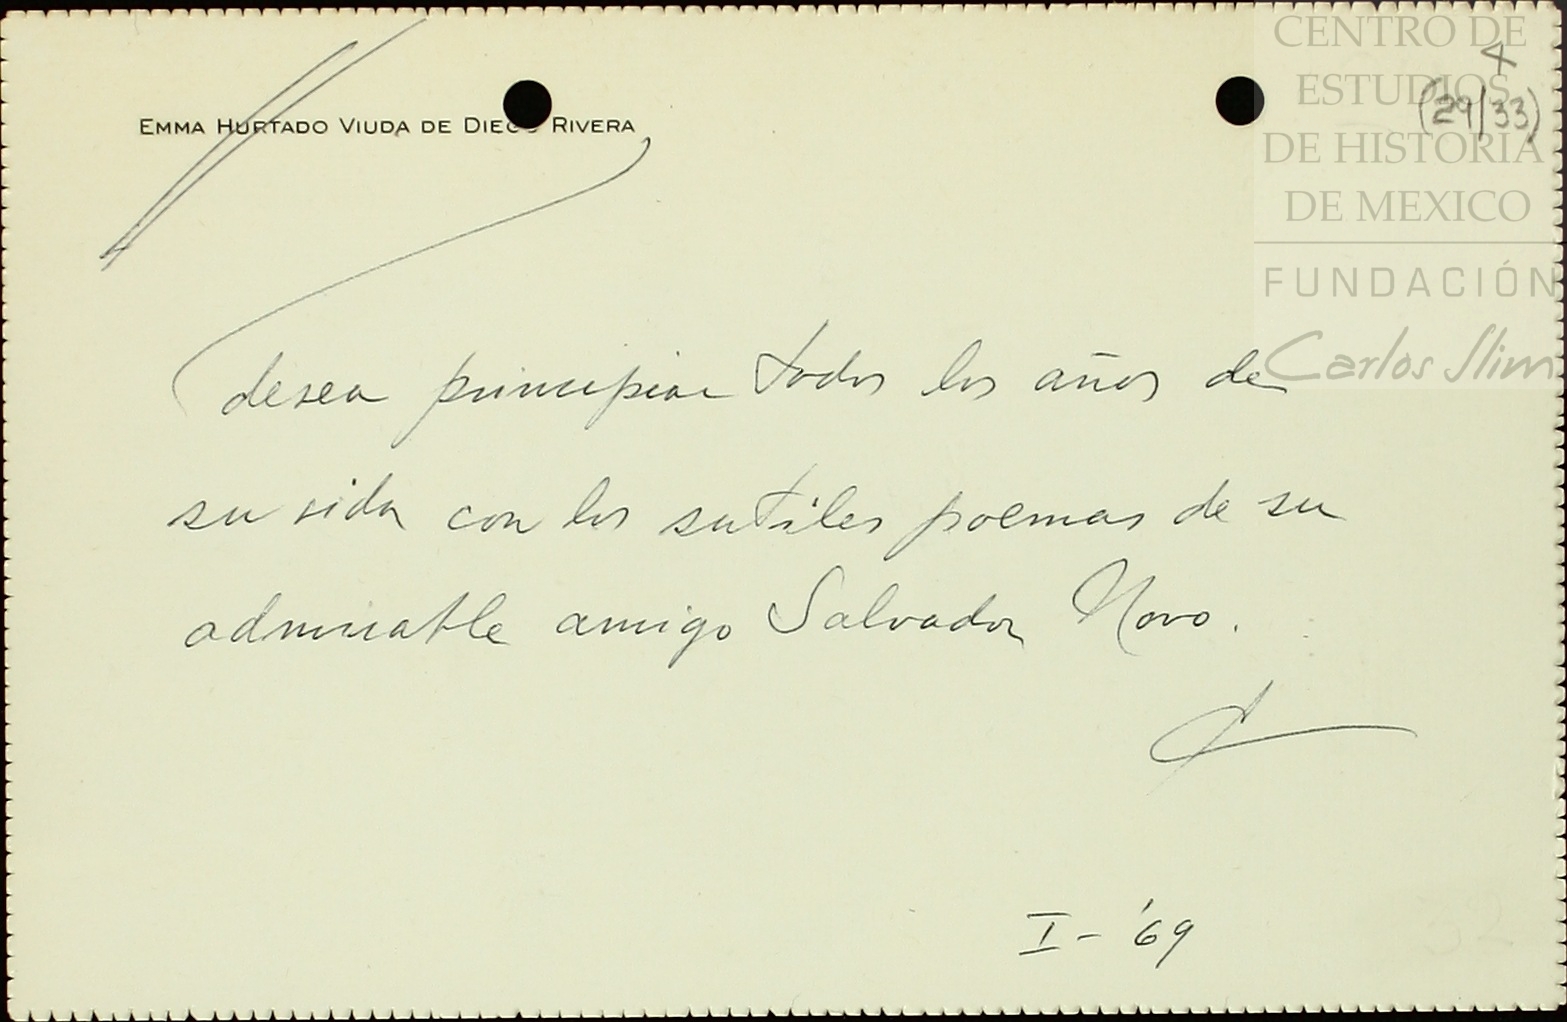 CENTRO DE
ESTUDIOS
DE HISTORIA
DE MEXICO
FUNDACIÓN
Carlos Slim
4
(29/33)
EMMA HURTADO VIUDA DE DIEGO RIVERA
desea principiar todos los años de
su vida con los sutiles poemas de su
admirable amigo Salvador Novo.
I - '69